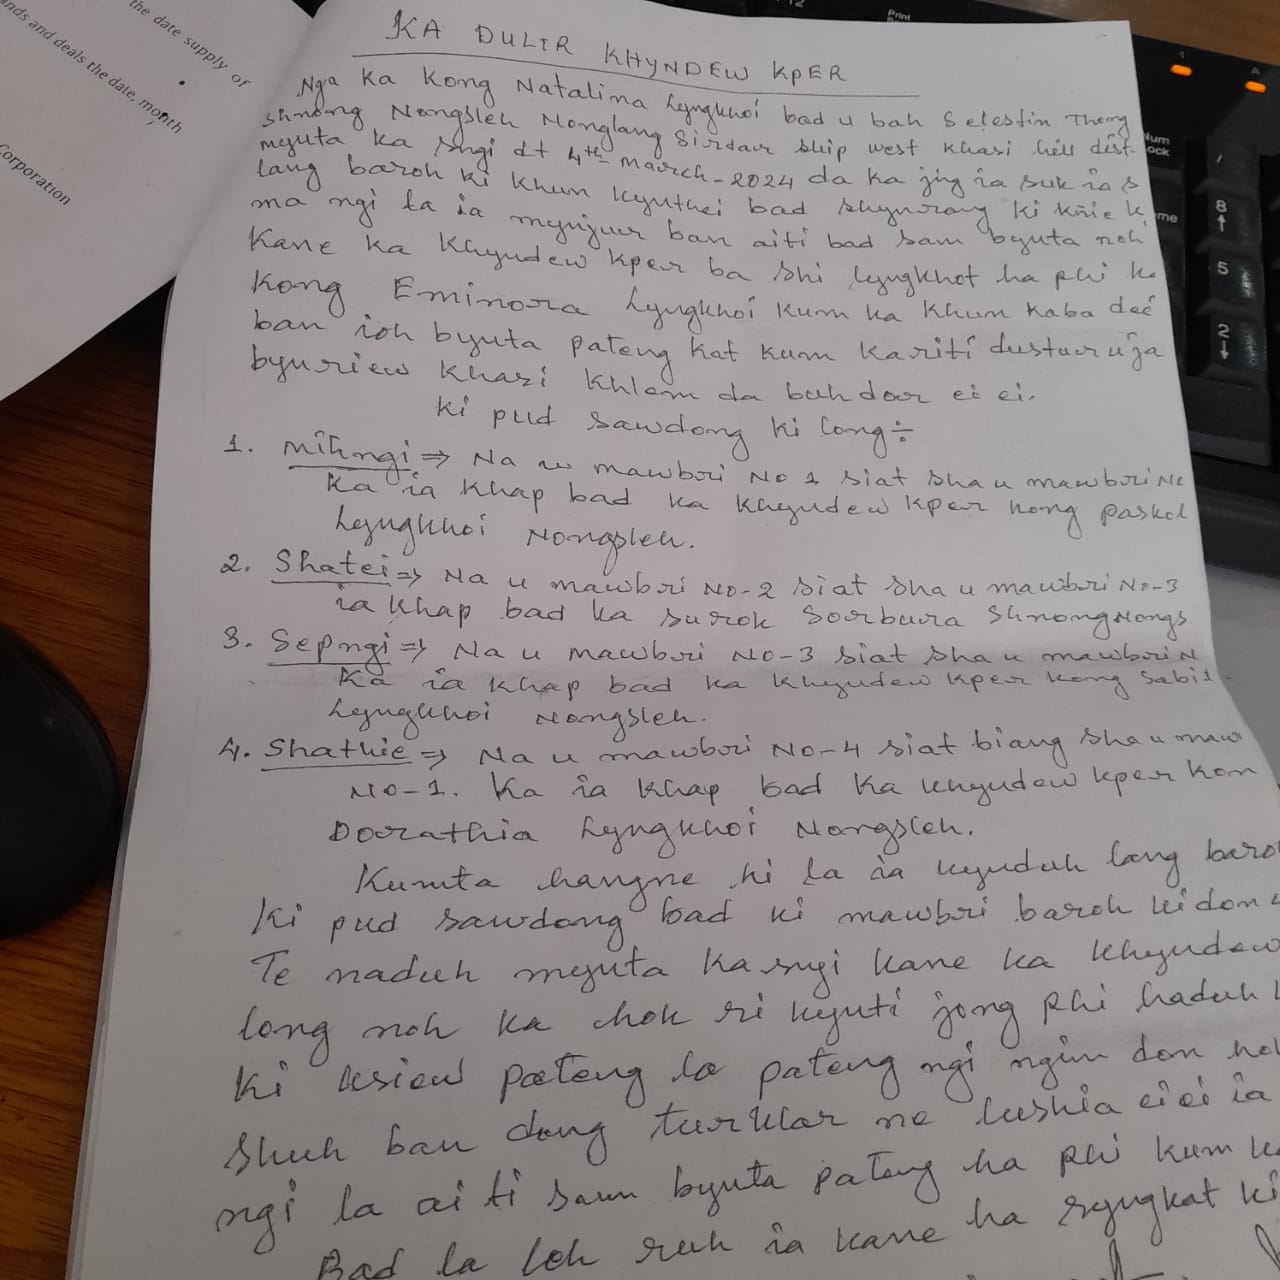 the date supply of
nds and deals the date, month
Corporation
Print
Num
Lock
1
A
/
8
5
2
KA DULIR KHYNDEW KPER
Nga Ka Kong Natalina Lyngkhoi bad u bah Selestin Thong
shnong Nongsleh Nonglang Sirdar ship west Khasi hill dist.
mynta ka sngi dt 4th march-2024 da ka jing ia suk ia s
lang baroh ki khun kynthei bad shynrang ki kñie k
ma ngi la ia mynjur ban aiti bad sam bynta noh
Kane ka Khyndew kper ba shi lyngkhot ha phi ka
Kong Eminora Lyngkhoi kum ka khun kaba dei
ban ioh bynta pateng kat kum ka riti dustur u ja
bynriew khasi khlem da buh dor ei ei.
ki pud sawdong ki long ÷
1. mihngi ⇒ Na u mawbri No 1 siat sha u mawbri No
Ka ia khap bad ka khyndew kper kong paskol
Lyngkhoi Nongsleh.
2. Shatei ⇒ Na u mawbri No-2 siat sha u mawbri No-3
ia khap bad ka surok Sorbura Shnong Nongs
3. Sepngi ⇒ Na u mawbri No-3 siat sha u mawbri N
Ka ia khap bad ka khyndew kper kong Sabit
Lyngkhoi Nongsleh.
4. Shathie ⇒ Na u mawbri No-4 siat biang sha u maw
No-1. Ka ia khap bad ka khyndew kper kon
Dorathia Lyngkhoi Nongsleh.
Kumta hangne ki la ia kynduh lang baro
ki pud sawdong bad ki mawbri baroh ki don 4
Te naduh mynta ka sngi kane ka khyndew
long noh ka chok ri kynti jong phi haduh
ki ksiew pateng la pateng ngi ngim don hok
shuh ban dong turklar ne lushia ei ei ia
ngi la ai ti sam bynta pateng ha phi kum ka
Bad la leh ruh ia kane ha syngkat ki